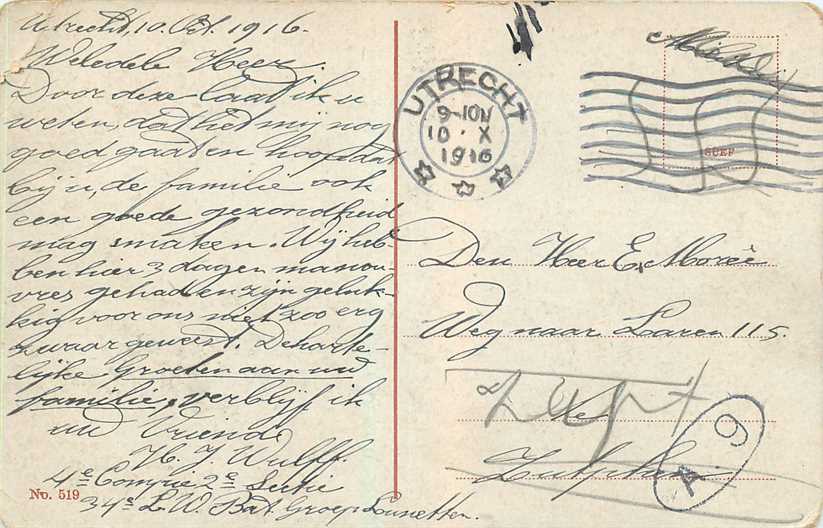 Utrecht, 10. Oct. 1916.
Weledele Heer.
Door deze laat ik u
weten, dat het mij nog
goed gaat en hoop dat
bij u, de familie ook
een goede gezondheid
mag smaken. Wij heb-
ben hier 3 dagen manou-
vres gehad en zijn geluk-
kig voor ons niet zoo erg
zwaar geweest. De harte-
lijke Groeten aan uw
familie, verblijf ik
uw Vriend
H. J. Wulff.
4e Compie 2e Sectie
34e L. W. Bat. Groep Lunetten.
No. 519
UTRECHT
9-10N
10 X
1916
Den Heer E. Morreé
Weg naar Laren 115.
te
Zutphen
A 9